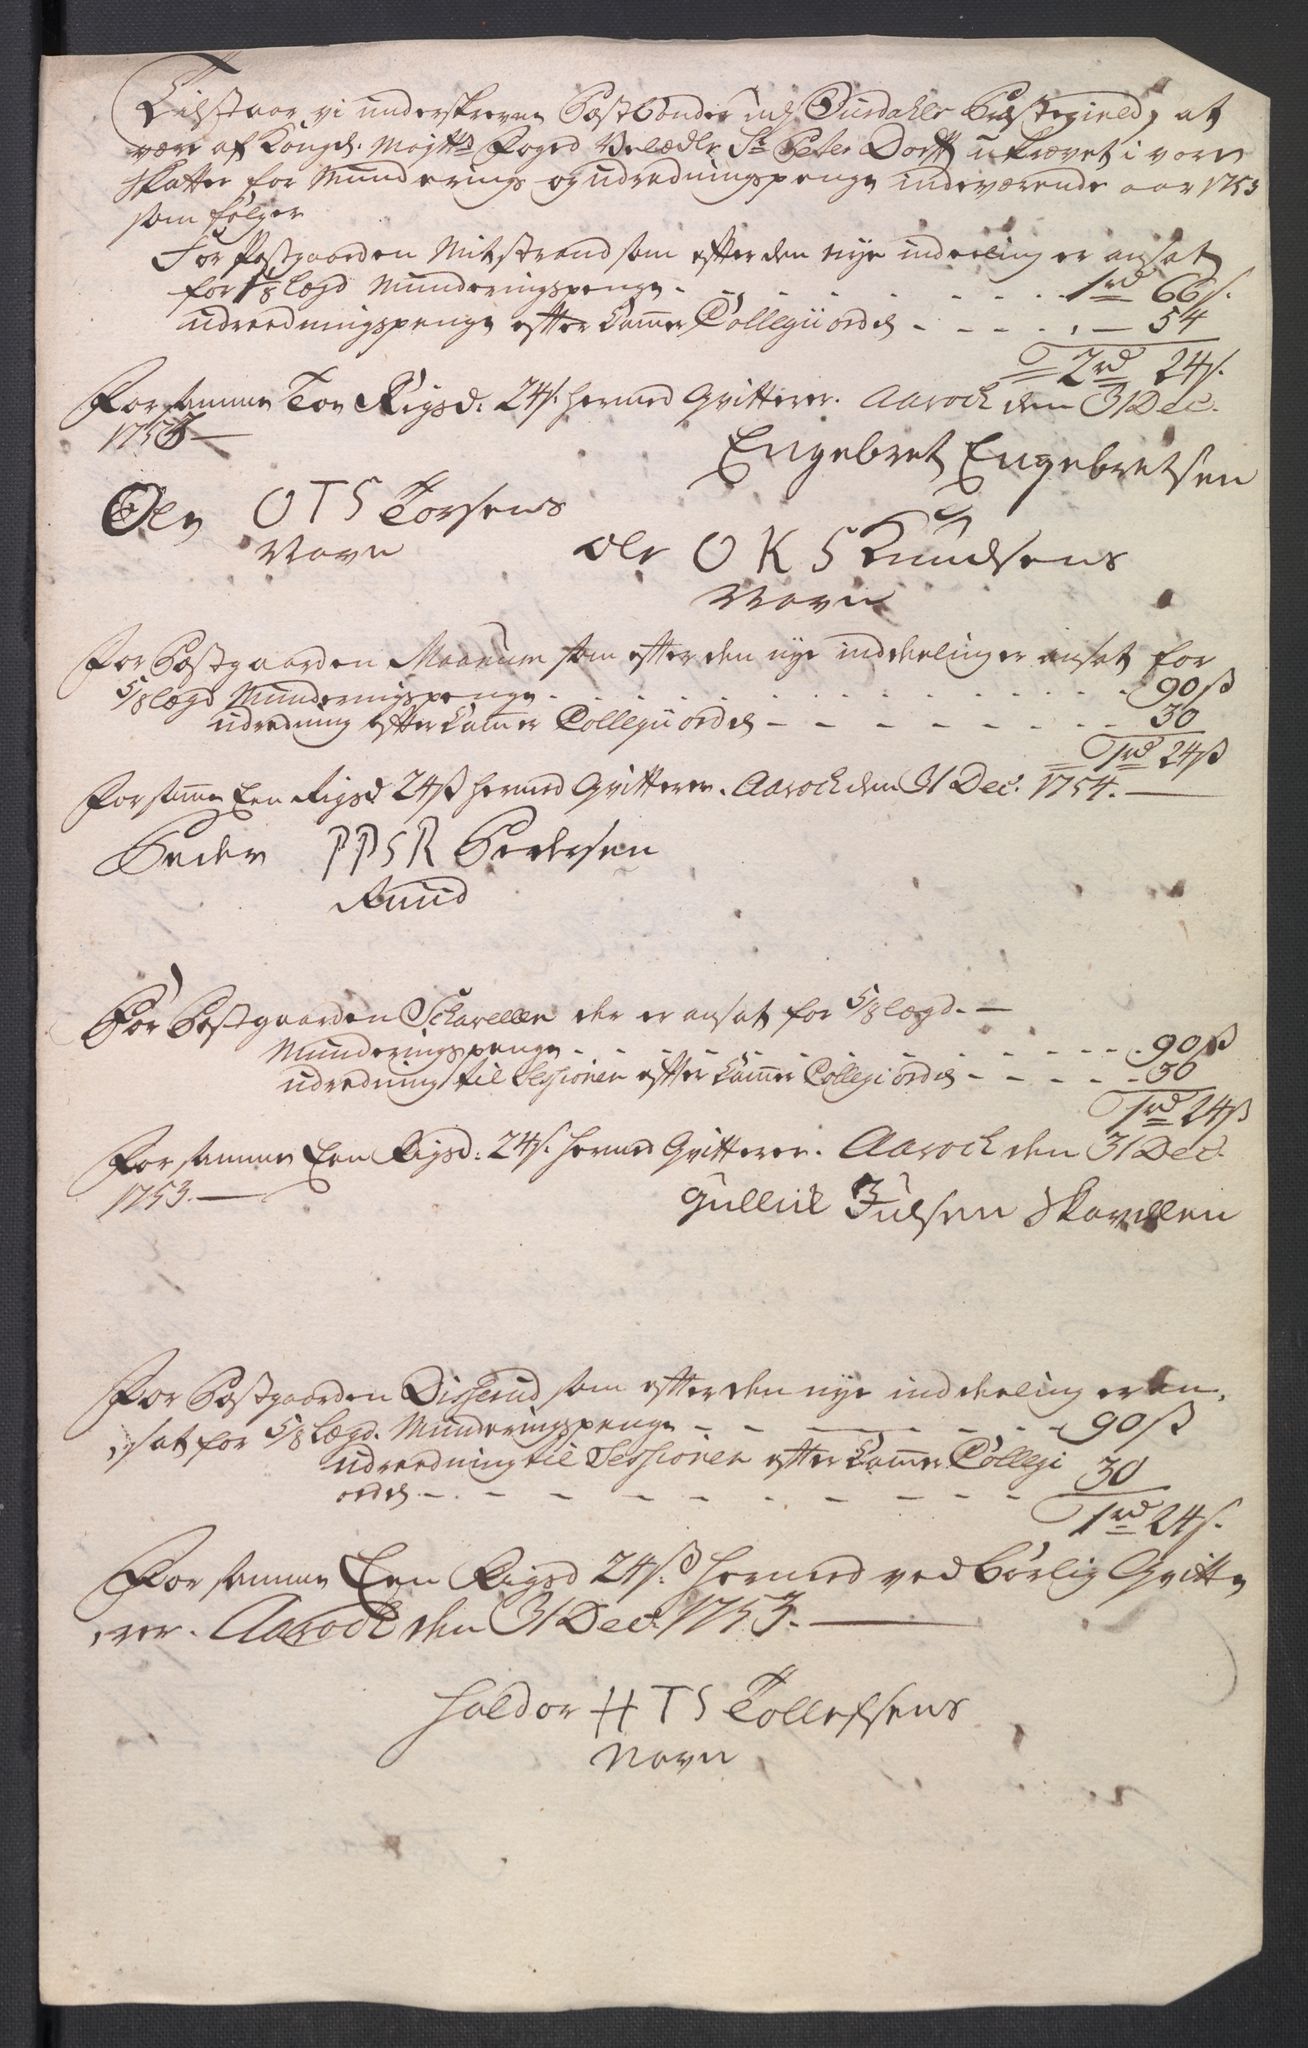 Tilstaar vi underskrevne Postbønder udj Hurdahls Præstegield, at
være af Kongel: Majtts Foged Velædle Sr Peter Dorff ukrævet i vore
skatter for Munderings og udredningspenge indeværende aar 1753
som følger
For Postgaarden Mitstrand som efter den nye indeeling er ansat
for 1 1/8 Lægd Munderingspenge - - - - 1 rd 66 s.
udreedningspenge efter Cammer Collegii ordre - - - - 54
2 rd 24 s.
For samme Toe Rigsd: 24 s. hermed Qvitterer. Aaroch den 31 Dec.
1753 —
Engebret Engebretsen
Ole OTS Torsens
Navn
Ole OKS Knudsens
Navn
For Postgaarden Maarum som efter den nye inddeeling er ansat for
5/8 Lægd Munderingspenge - - - - 90 ß
udredning efter Cammer Collegii ordre - - - - 30
1 rd 24 ß
For samme Een Rigsd 24 ß hermed Qvitterer. Aaroch den 31 Dec. 1754. —
Peder PPSR Pedersen
Ruud
For Postgaarden Schavellen der er ansat for 5/8 Lægd. —
Munderingspenge - - - - 90 ß
udredning til Sessionen efter Cammer Collegi ordre - - - - 30
1 rd 24 ß
For samme Een Rigsd: 24 s. hermed Qvitterer. Aaroch den 31 Dec.
1753. —
Gullich Julsen Skavellen
For Postgaarden Disserud som efter den nye inddeeling er an,
,sat for 5/8 Lægd. Munderingspenge - - - - 90 ß
udreedning til Sessionen efter Cammer Collegi 30
ordre - - - -
1 rd 24 s.
For samme Een Rigsd 24 ß. hermed ved børlig Qvitte
,rer. Aaroch den 31 Dec. 1753. —
Haldor HTS Tollefsens
Navn